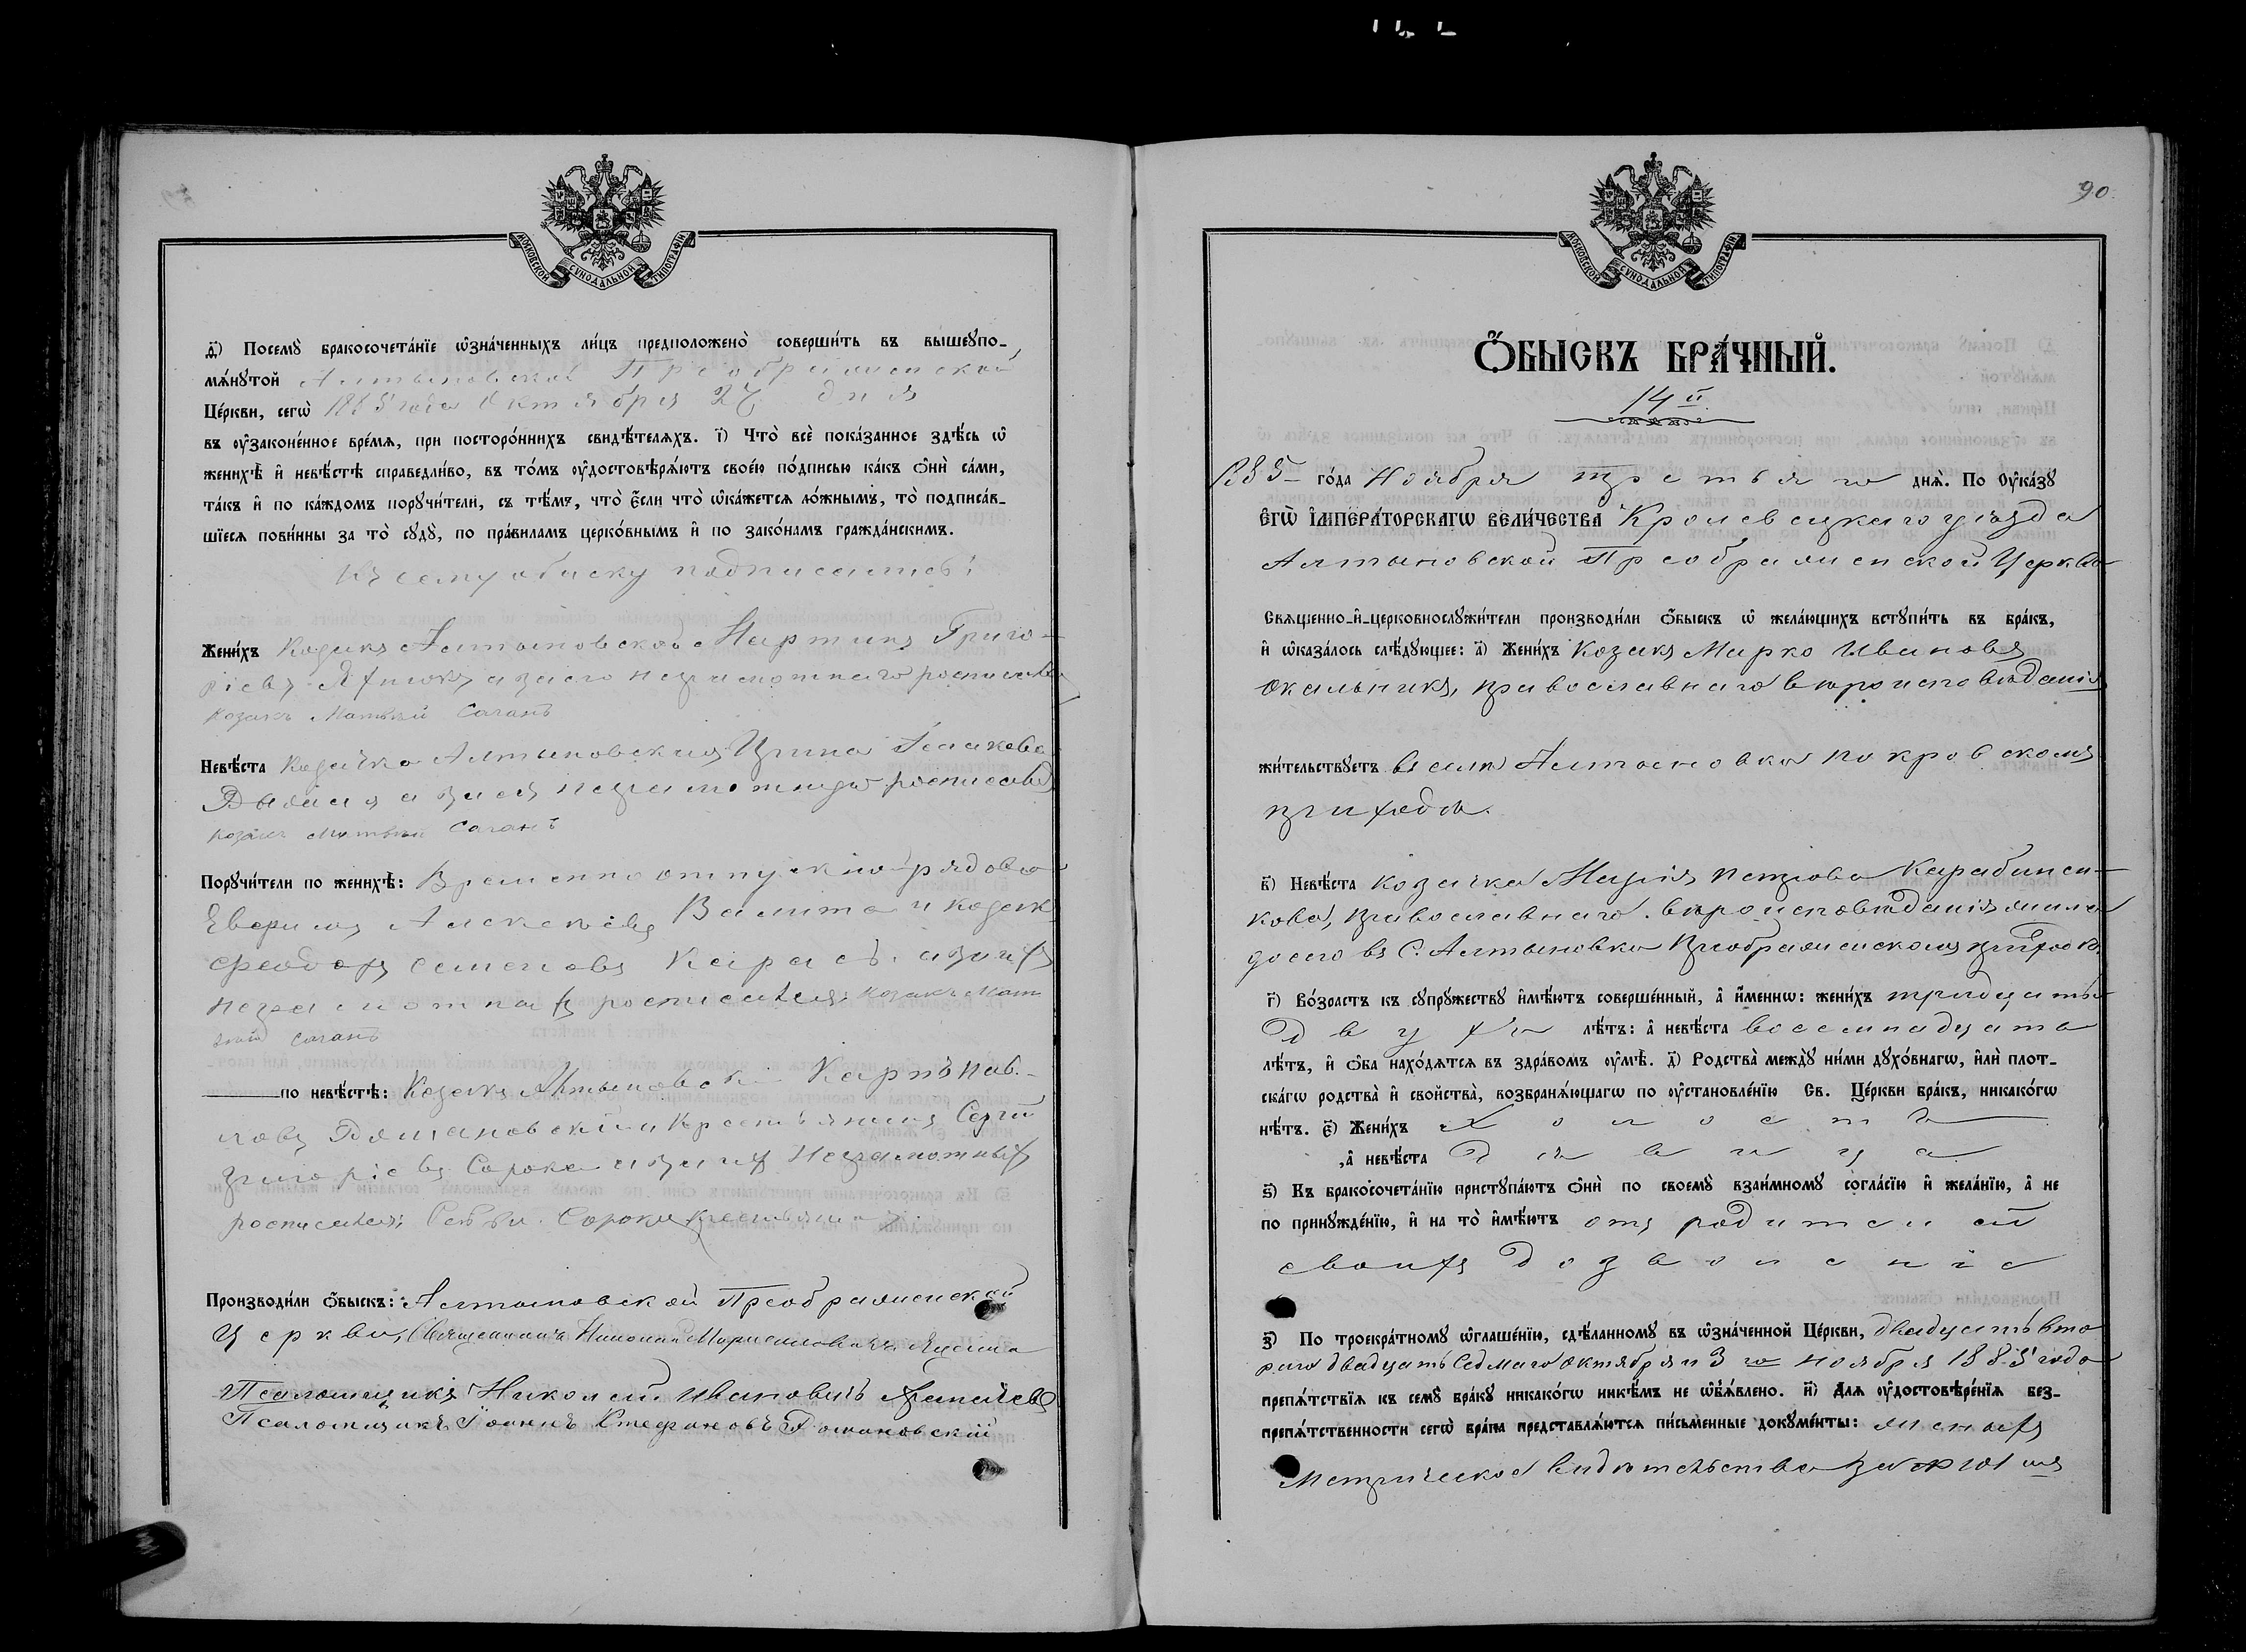 МОСКОВСКОЙ СУНОДАЛЬНОЙ ТИПОГРАФІИ
д҃) Посемꙋ бракосочета́нїе ѡ҆зна́ченныхъ ли́цъ предположено̀ соверши́ть въ вышеꙋпо-
мѧ́нꙋтой Алтыновской Преображенской
Це́ркви, сегѡ̀ 1885 года Октября 27 дня
въ ᲂу҆законе́нное вре́мѧ, при посторо́ннихъ свидѣ́телѧхъ. і҃) Что̀ всѐ пока́занное здѣ́сь ѡ҆
женихѣ̀ и҆ невѣ́стѣ справедли́во, въ то́мъ ᲂу҆достовѣрѧ́ютъ свое́ю по́дписью ка́къ ѻ҆нѝ са́ми,
та́къ и҆ по ка́ждомъ порꙋчи́тели, съ тѣ́мъ, что̀ є҆́сли что̀ ѡ҆ка́жетсѧ ло́жнымъ, то̀ подписа́в-
шїесѧ пови́нны за то̀ сꙋдꙋ̀, по пра́виламъ церко́внымъ и҆ по зако́намъ гражда́нскимъ.
Къ сему обыску подписались:
Жени́хъ Козакъ Алтыновской Мартинъ Григо-
ріевъ а за его неграмотнаго росписался
козакъ Матвѣй Саганъ
Невѣ́ста Козачка Алтыновская Ирина
а за ея неграмотную росписався
козакъ Матвѣй Саганъ
Порꙋчи́тели по женихѣ̀: Временно отпускной рядовой
Алексѣевъ и козакъ
Феодоръ Семеновъ Карась, а за ихъ
неграмотныхъ росписался козакъ Мат
вѣй Саганъ
по невѣ́стѣ: Козакъ Алтыновскій Карпъ Пав-
ловъ Романовскій и Крестьянинъ Сергій
Григоріевъ Сорока а за ихъ Неграмотныхъ
росписался: Сорока
Производи́ли ѻ҆́быскъ: Алтыновской Преображенской
Церкви, Священникъ
Псаломщикъ Николай Ивановичъ
Псаломщикъ Іоаннъ Стефановъ Романовскій
90
МОСКОВСКОЙ СУНОДАЛЬНОЙ ТИПОГРАФІИ
Ѻ҆́БЫСКЪ БРА́ЧНЫЙ.
14й
1885 го́да Ноября третьяго днѧ̀. По Оу҆ка́зꙋ
Є҆ГѠ̀ И҆МПЕРА́ТОРСКАГѠ ВЕЛИ́ЧЕСТВА Кролевецкаго уѣзда
Алтыновской Преображенской Церкви
Свѧще́нно-и҆-церковнослꙋжи́тели производи́ли ѻ҆́быскъ ѡ҆ жела́ющихъ встꙋпи́ть въ бра́къ,
и҆ ѡ҆каза́лось слѣ́дꙋющее: а҃) Жени́хъ Козакъ Марко Ивановъ
Окальникъ, православнаго вѣроисповѣданія
жи́тельствꙋетъ въ селѣ Алтыновкѣ Покровскомъ
приходѣ.
в҃) Невѣ́ста козачка Марія Петрова Карабинен-
кова, православнаго вѣроисповѣданія жила
до сего въ С. Алтыновкѣ Преображенскомъ приходѣ.
г҃) Во́зрастъ къ сꙋпрꙋ́жествꙋ и҆мѣ́ютъ соверше́нный, а҆ и҆́меннѡ: жени́хъ тридцати
двухъ лѣ́тъ: а҆ невѣ́ста восемнадцати
лѣ́тъ, и҆ ѻ҆́ба нахо́дѧтсѧ въ здра́вомъ ᲂу҆мѣ̀. д҃) Родства̀ междꙋ̀ ни́ми дꙋхо́внагѡ, и҆лѝ плот-
ска́гѡ родства̀ и҆ сво́йства̀, возбранѧ́ющагѡ по ᲂу҆становле́нїю Св. Це́ркви бра́къ, никако́гѡ
нѣ́тъ. є҃) Жени́хъ Холостъ
,а҆ невѣ́ста Дѣвица
ѕ҃) Къ бракосочета́нїю пристꙋпа́ютъ ѻ҆нѝ по своемꙋ̀ взаи́мномꙋ согла́сїю и҆ жела́нїю, а҆ не
по принꙋжде́нїю, и҆ на то̀ и҆мѣ́ютъ отъ родителей
своихъ дозволеніе
з҃) По троекра́тномꙋ ѡ҆глаше́нїю, сдѣ́ланномꙋ въ ѡ҆зна́ченной Це́ркви, двадцать вто
раго двадцать седмаго октября и 3го ноября 1885 года
препѧ́тствїѧ къ семꙋ̀ бра́кꙋ никако́гѡ никѣ́мъ не ѡ҆б̾ѧ́влено. и҃) Длѧ ᲂу҆достовѣре́нїѧ без-
препѧ́тственности сегѡ̀ бра́ка представлѧ́ютсѧ пи́сьменные докꙋме́нты: жениха
Метрическое видѣтельство за № 101 мъ